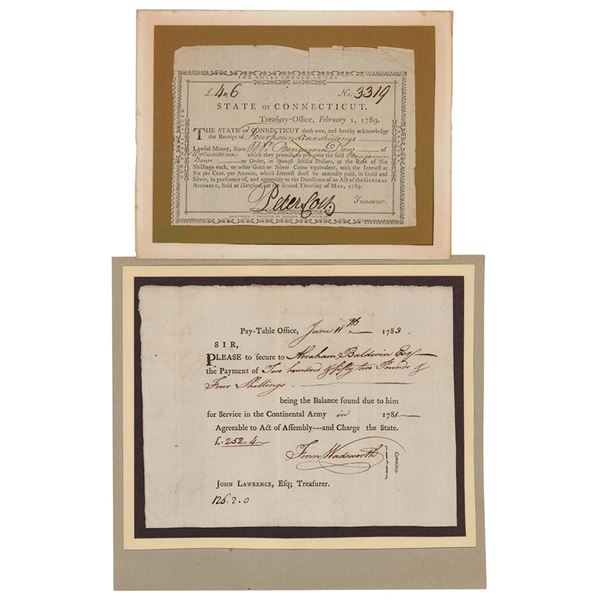 FOR NOTES LODGED IN THE
£. 4 " 6 No. 3319
STATE OF CONNECTICUT.
Treasury-Office, February 1, 1789.
THE STATE of CONNECTICUT doth owe, and hereby acknowledge
the Receipt of Four pounds six shillings
Lawful Money, from Mr. Benjamin Dow of
Voluntown which they promise to pay unto the said Benjamin
Dow or Order, in Spanish Milled Dollars, at the Rate of Six
Shillings each, or other Gold or Silver Coins equivalent, with the Interest at
Six per Cent. per Annum, which Interest shall be annually paid, in Gold and
Silver, in pursuance of, and agreeably to the Directions of an Act of the GENERAL
ASSEMBLY, held at Hartford, on the second Thursday of May, 1789.
Peter Colt Treasurer.
Pay-Table Office, June 11th 1783.
SIR,
PLEASE to secure to Abraham Baldwin Esqr
the Payment of Two hundred & fifty two Pounds &
Four Shillings
being the Balance found due to him
for Service in the Continental Army in 1781
Agreeable to Act of Assembly---and Charge the State.
£. 252. 4.
Fenn Wadsworth
Committee
JOHN LAWRENCE, Esq; Treasurer.
126. 2. 0